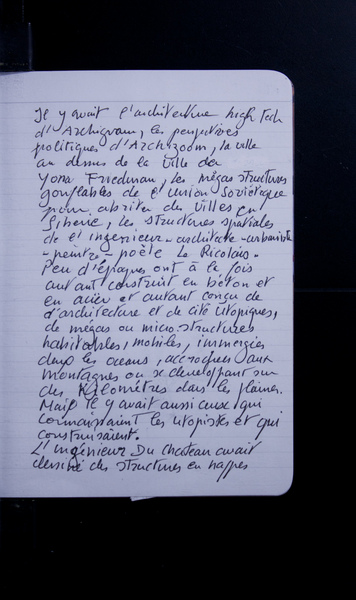 Il y avait l'architecture high tech
d'Archigram, les perspectives
politiques d'Archizoom, la ville
au dessus de la ville de
Yona Friedman, les mégas structures
gonflables de l'Union Soviétique
pour abriter des villes en
Sibérie, les structures spatiales
de l'ingénieur-architecte-urbaniste
-peintre-poète Le Ricolais.
Peu d'époques ont à la fois
autant construit en béton et
en acier et autant conçu de
d'architecture et de cité utopiques,
de mégas ou micro-structures
habitables, mobiles, immergées
dans les océans, accrochées aux
montagnes ou se développant sur
des Kilomètres dans les plaines.
Mais il y avait aussi ceux qui
connaissaient les utopistes et qui
construisaient.
L'ingénieur Du Chateau avait
dessiné des structures en nappes